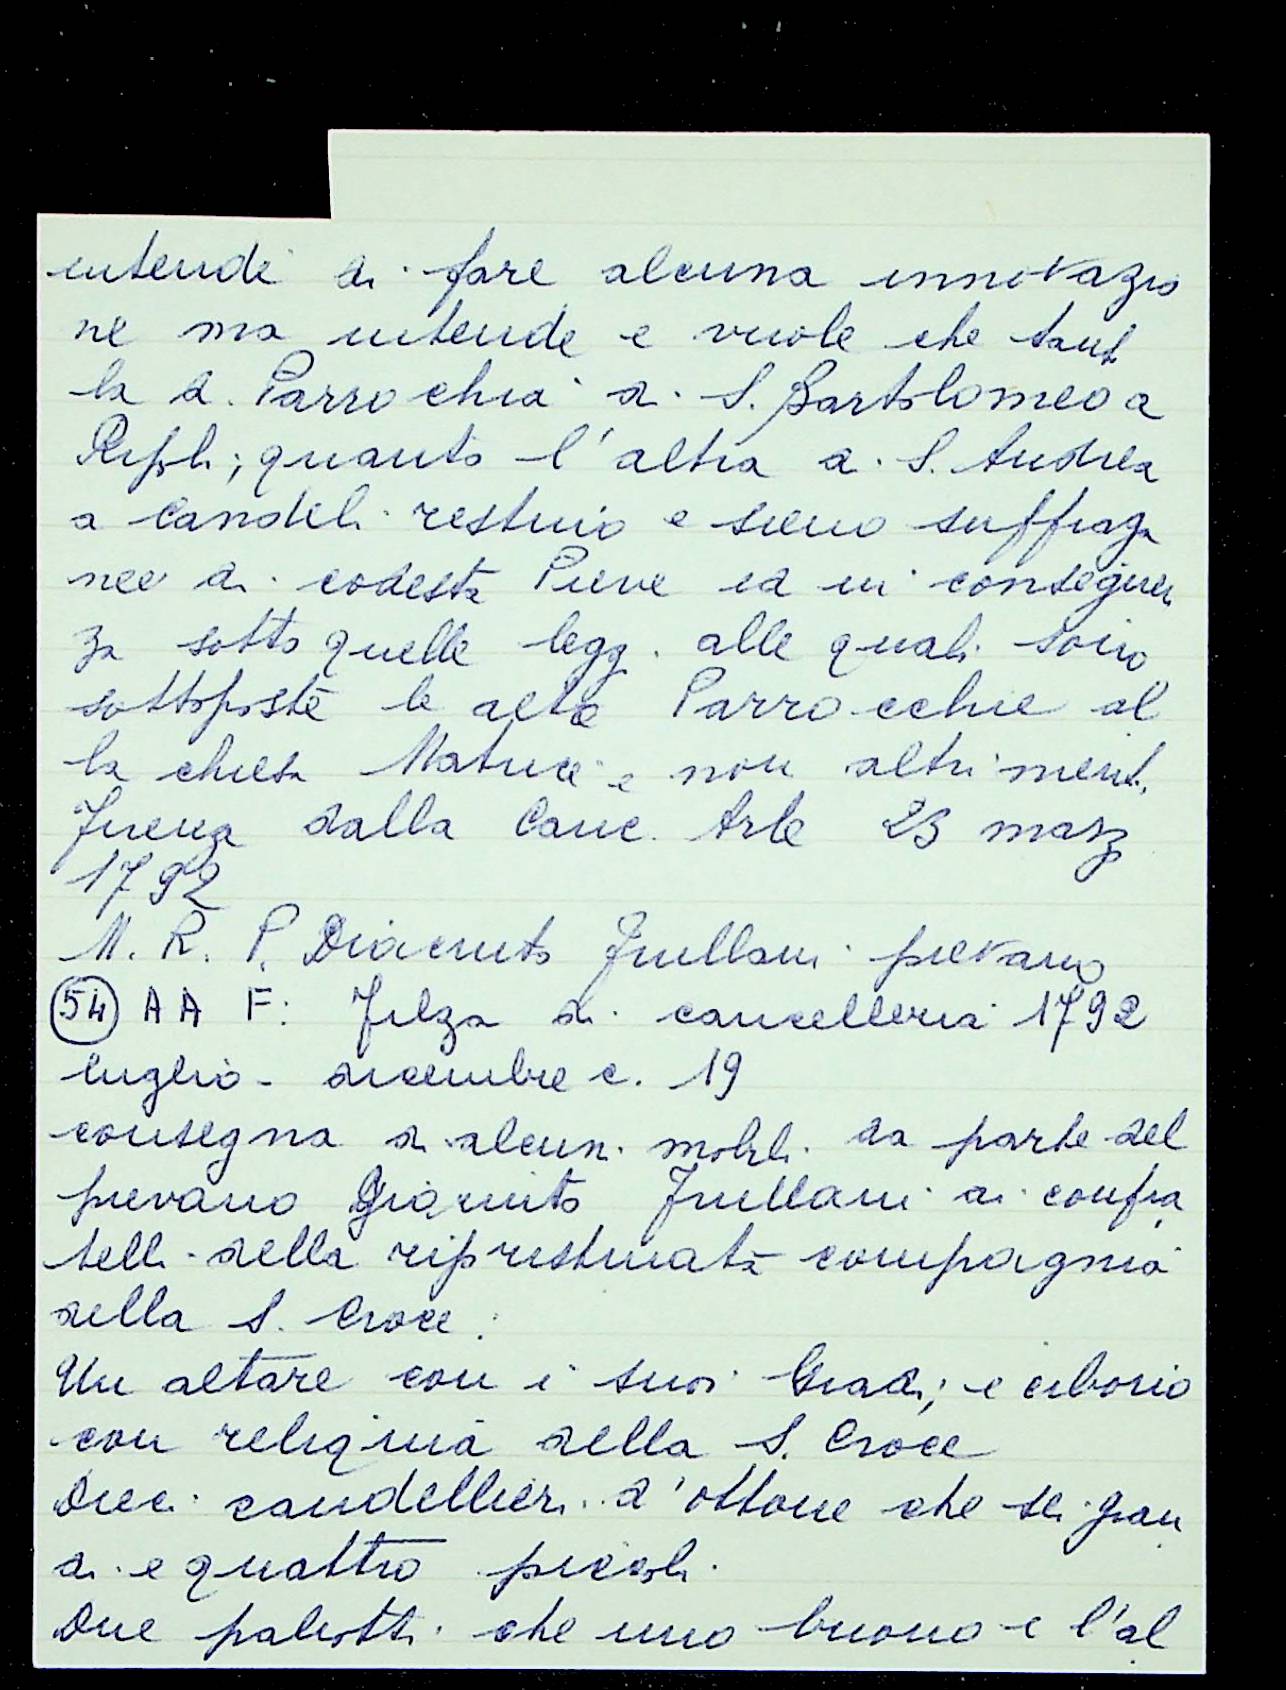 intende di fare alcuna innovazio
ne ma intende e vuole che tant
la d. Parrochia di S. Bartolomeo a
Ripoli; quanto l'altra di S. Andrea
a Candeli restino e sieno suffraga
nee di codesta Pieve ed in conseguen
za sotto quelle leggi alle quali sono
sottoposte le altre Parrocchie al
la chiesa Matrice e non altrimenti.
Firenze dalla Canc. Arle 23 marz
1792
M. R. P. Diacinto Frullani pievano
54 AA F: Filza di cancelleria 1792
luglio - dicembre c. 19
consegna di alcuni mobili da parte del
pievano Giacinto Frullani ai confra
telli della ripristinata compagnia
della S. Croce:
Un altare con i suoi Gradi; e ciborio
con reliquia della S. Croce
Dieci candellieri d'ottone che sei gran
di e quattro piccoli.
Due paliotti che uno buono e l'al